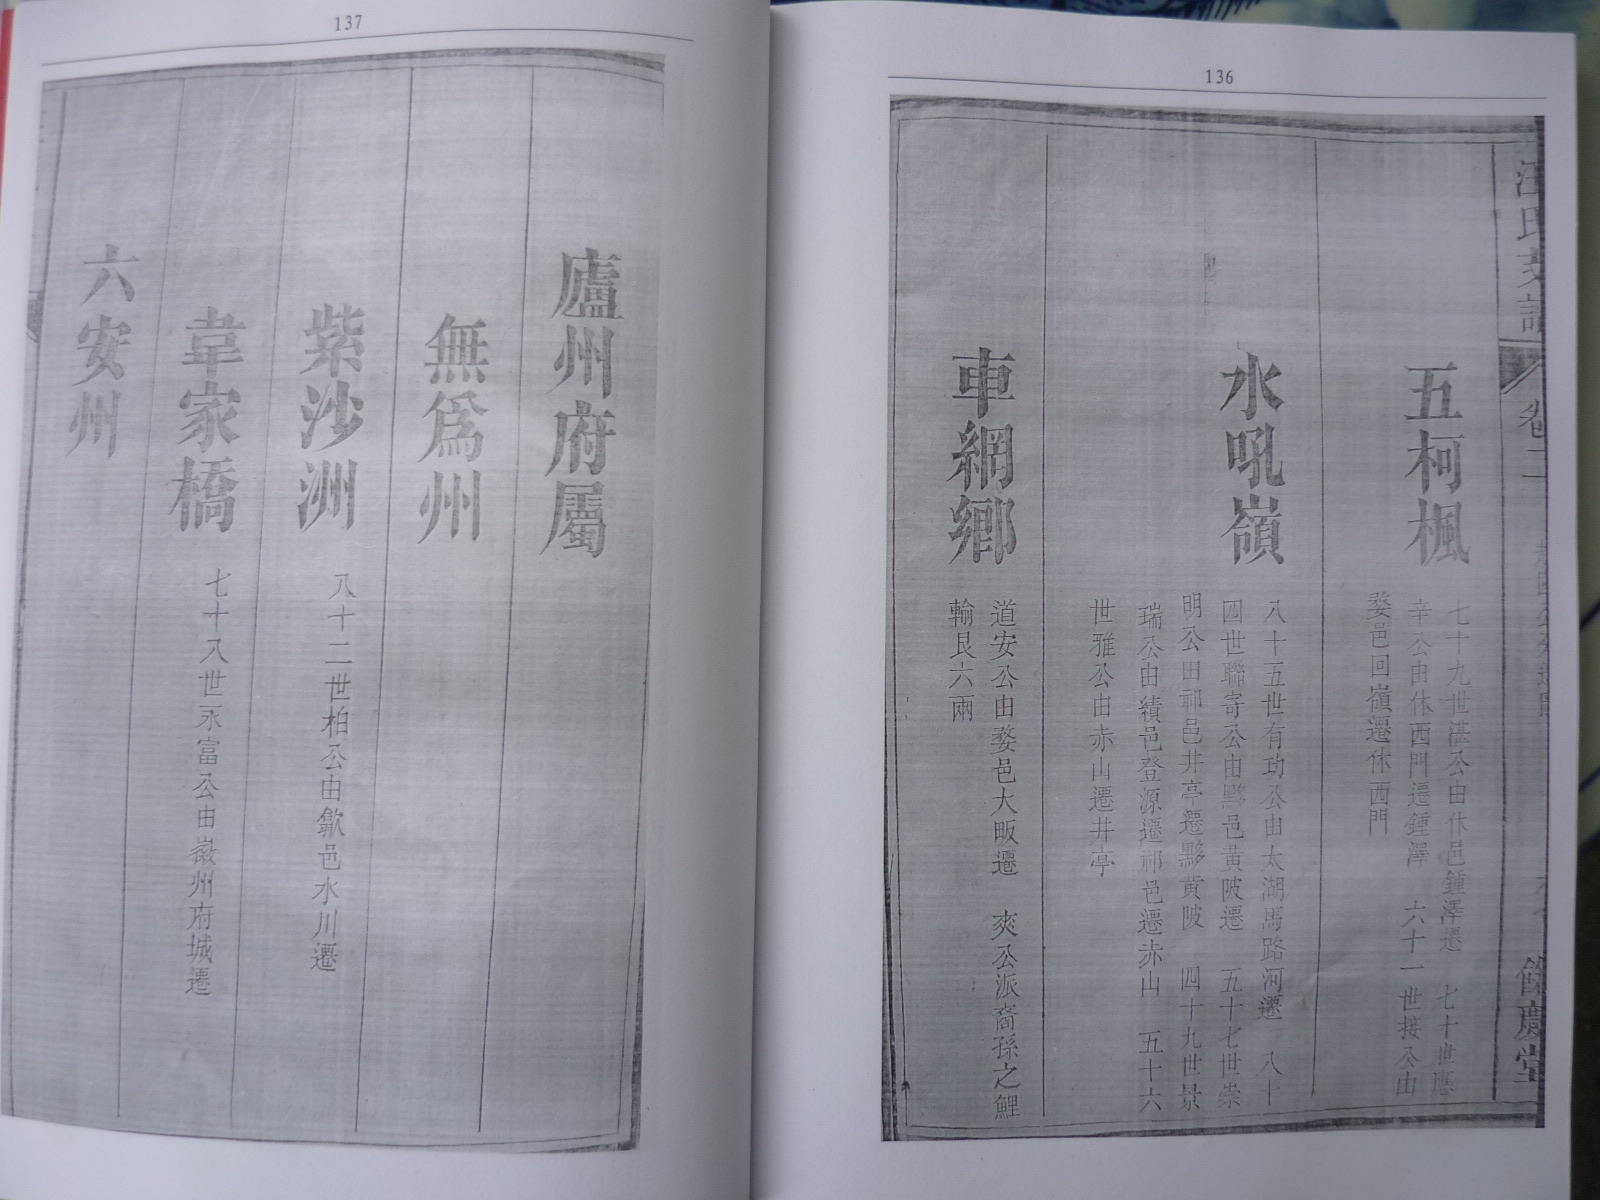 136
汪氏支譜
卷二
餘慶堂
五柯楓
七十九世湛公由休邑鍾澤遷 七十世應
辛公由休西門遷鍾澤 六十一世接公由
婺邑回嶺遷休西門
水吼嶺
八十五世有功公由太湖馬路河遷 八十
四世聯寄公由黟邑黄陂遷 五十七世崇
明公由祁邑井亭遷黟黄陂 四十九世景
瑞公由績邑登源遷祁邑遷赤山 五十六
世雅公由赤山遷井亭
車網鄉
道安公由婺邑大畈遷 爽公派裔孫之鯉
輸艮六兩
137
廬州府屬
無爲州
紫沙洲
八十二世柏公由歙邑水川遷
韋家橋
七十八世永富公由徽州府城遷
六安州